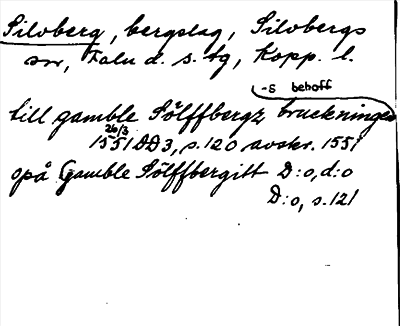 Silvberg, bergslag, Silvbergs
sn, Falu d. s. tg, Kopp. l.
-s behoff
till gamble Sölffbergz bruckninges
26/3
1551 DD 3, s. 120 avskr. 1551
opå Gamble Sölffbergitt D:o, d:o
D:o, s. 121